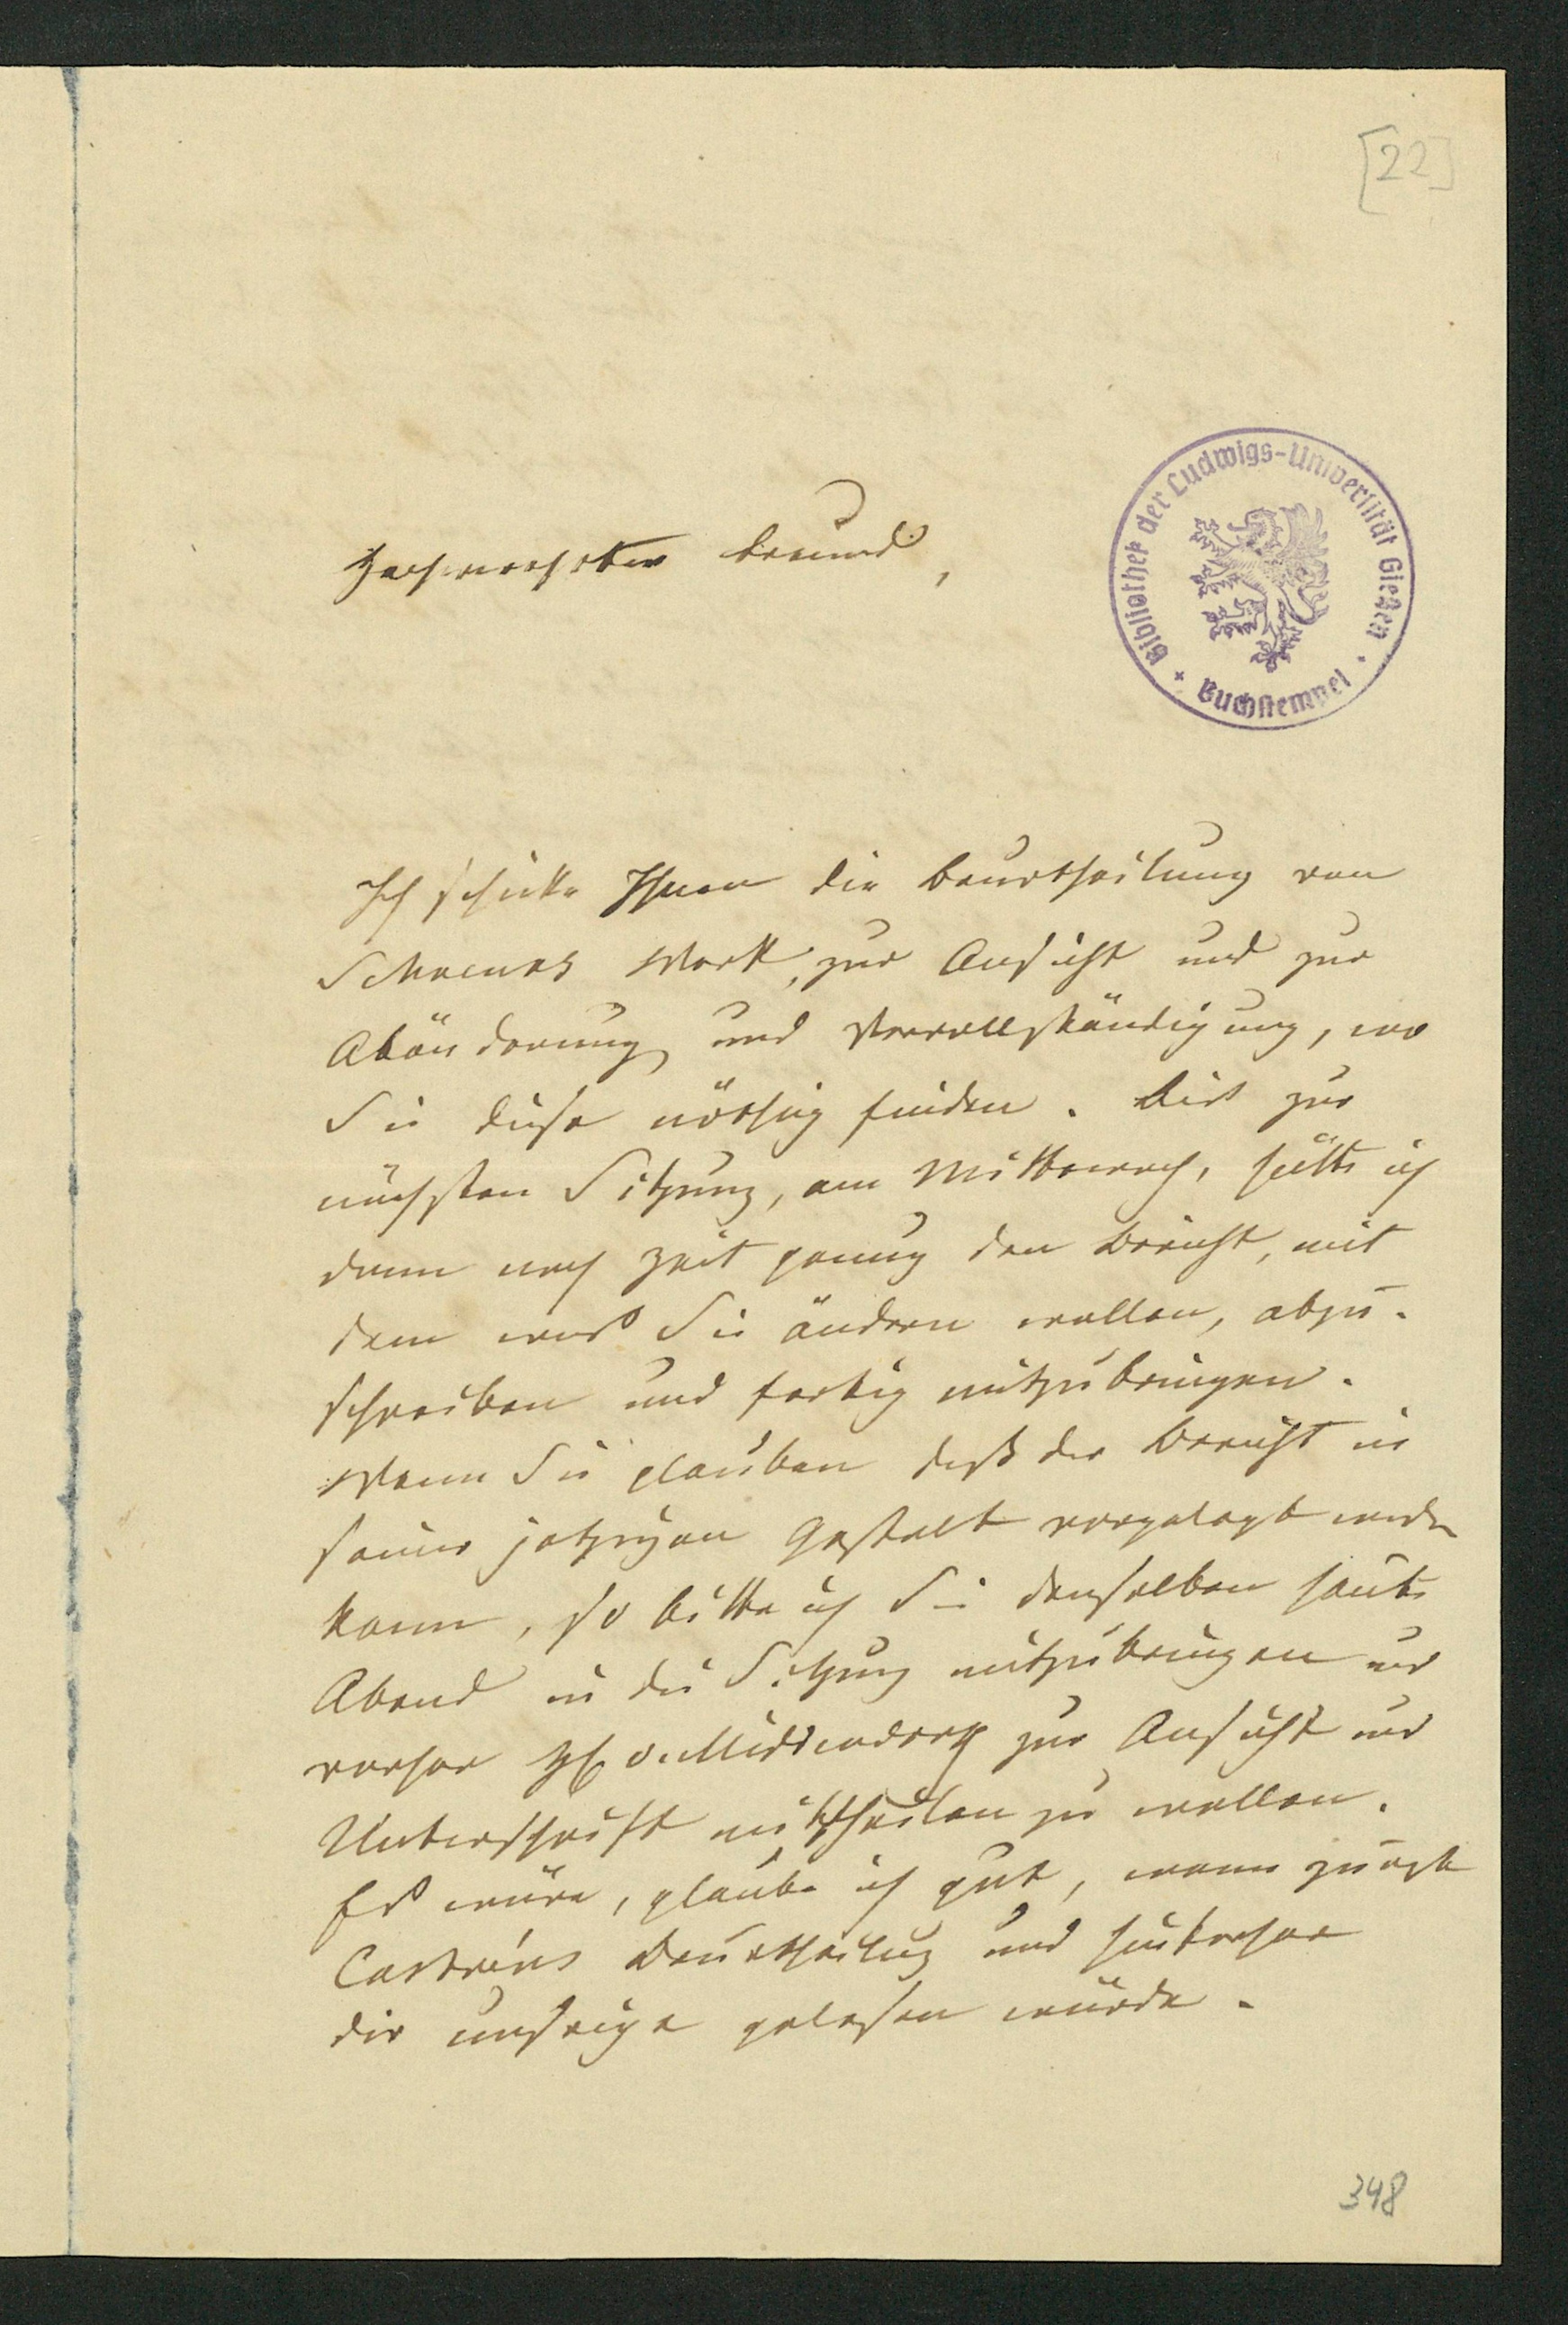 [22]
Bibliothek der Ludwigs-Universität Gießen
Buchstempel
Hochverehrter Freund,
Ich schicke Ihnen die Beurtheilung von
Schrenks Werk, zur Ansicht und zur
Abänderung und Vervollständigung, wo
Sie diese nöthig finden. Bis zur
nächsten Sitzung, am Mittwoch, hätte ich
dann noch Zeit genug den Bericht, mit
dem was Sie ändern wollen, abzu-
schreiben und fertig mitzubringen.
Wenn Sie glauben daß der Bericht in
seiner jetzigen Gestalt vorgelegt werden
kann, so bitte ich Sie denselben heute
Abend in die Sitzung mitzubringen und
vorher H. v. Middendorff zur Ansicht und
Unterschrift mittheilen zu wollen.
Es wäre, glaube ich gut, wenn zuerst
Castréns Beurtheilung und hinterher
die unsrige gelesen würde.
348